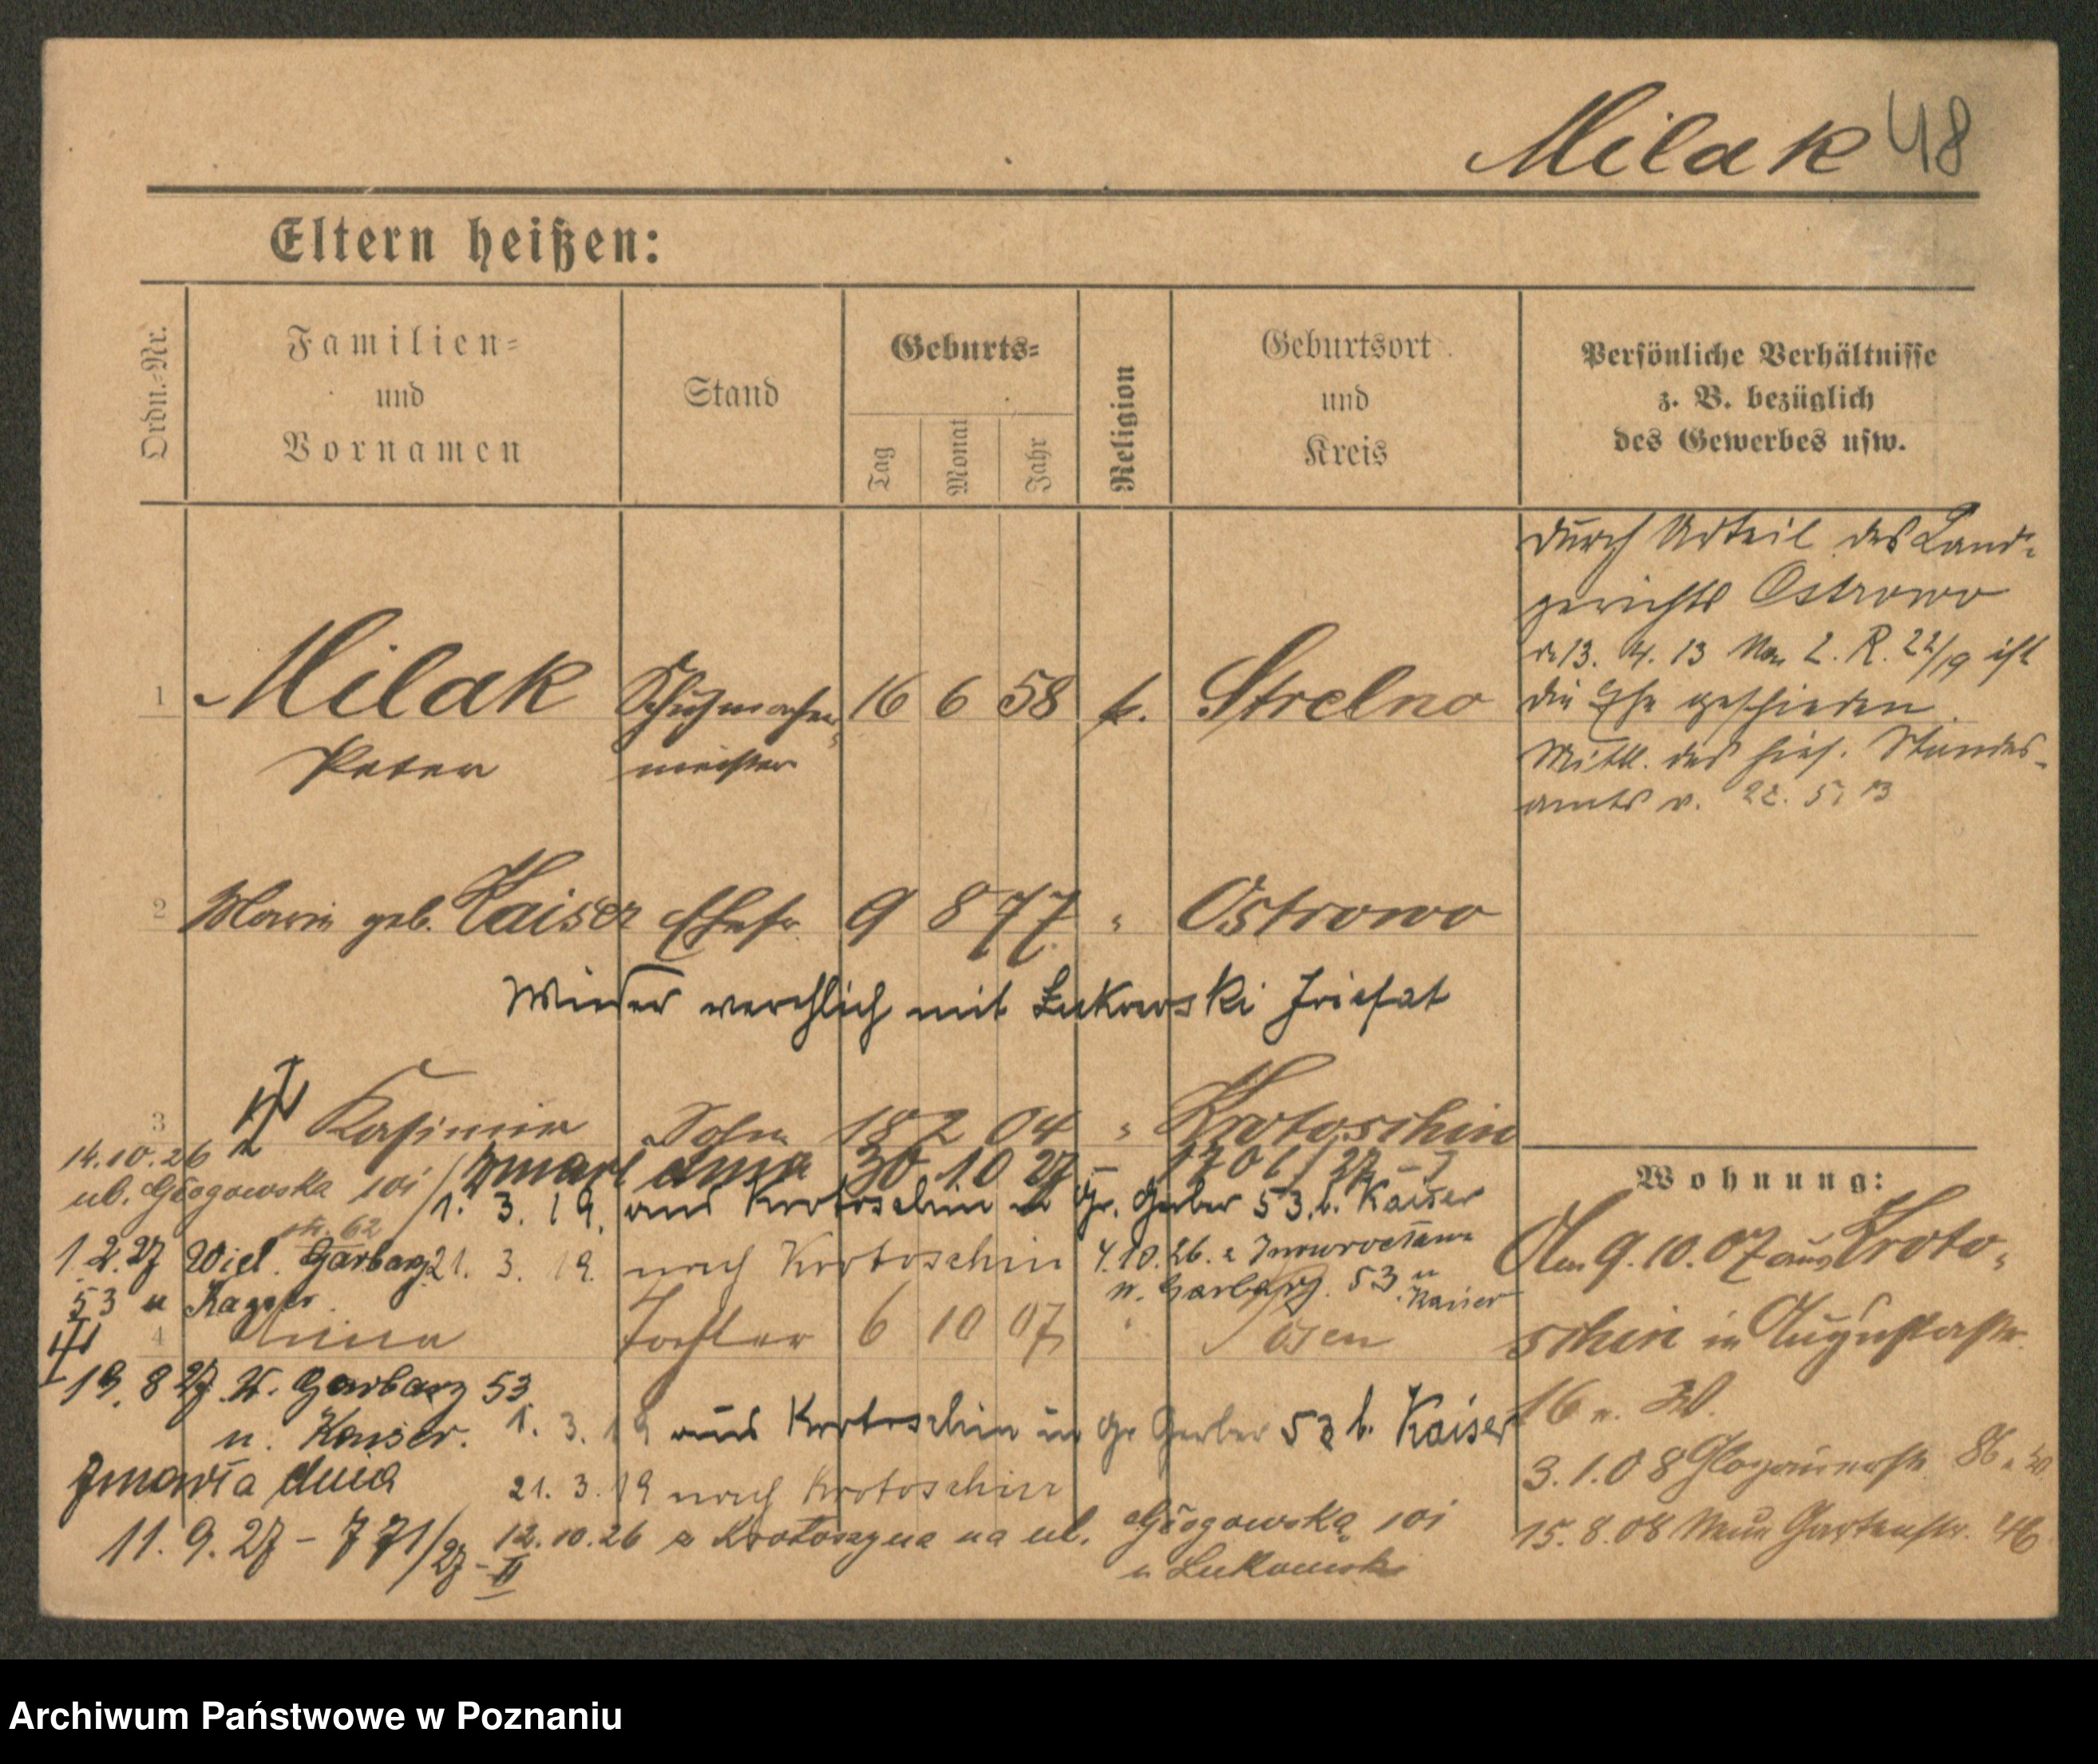 Milak 48
Eltern heißen:
Ordn.-Nr.
Familien-
und
Vornamen
Stand
Geburts-
Tag
Monat
Jahr
Religion
Geburtsort
und
Kreis
Persönliche Verhältnisse
z. B. bezüglich
des Gewerbes usw.
1 Milak Schuhmacher- 16 6 58 k. Strelno
Peter meister
durch Urteil des Land-
gerichts Ostrowo
v. 13. 4. 13 2. R. 22/19 ist
die Ehe geschieden.
Mittl. des hies. Standes-
amts v. 22. 5. 13
2 Maria geb. Kaiser Ehefr. 9 8 77 " Ostrowo
Wieder verehlich mit Lukowski
3 Kasimir Sohn 18 2 04 " Krotoschin
14.10.26
ul. Głogowska 101
zmarł dnia 30 10 27 - 1701/27 -
1. 3. 19. aus Krotoschin Gr. Gerber 53. b. Kaiser
62
1.2.27 Wiel. Garbary
53 u
21. 3. 19. nach Krotoschin
4.10.26. z
w. Garbary. 53 u
Kaiser
4 Anna Tochter 6 10 07 " Posen
19. 8 27. W. Garbary 53
u. Kaiser.
1. 3. 19 aus Krotoschin in Gr Gerber 53 b. Kaiser
zmarła dnia
11. 9. 27 - 771/27 - II
21. 3. 19 nach Krotoschin
12.10.26 z Krotoszyna na ul. Głogowska 101
u Lukowski
Wohnung:
Am 9.10.07 aus Kroto-
schin in Augustastr.
16 W.
3.1.08 Glogauerstr. 86
15.8.08 Neue Gartenstr. 46
Archiwum Państwowe w Poznaniu